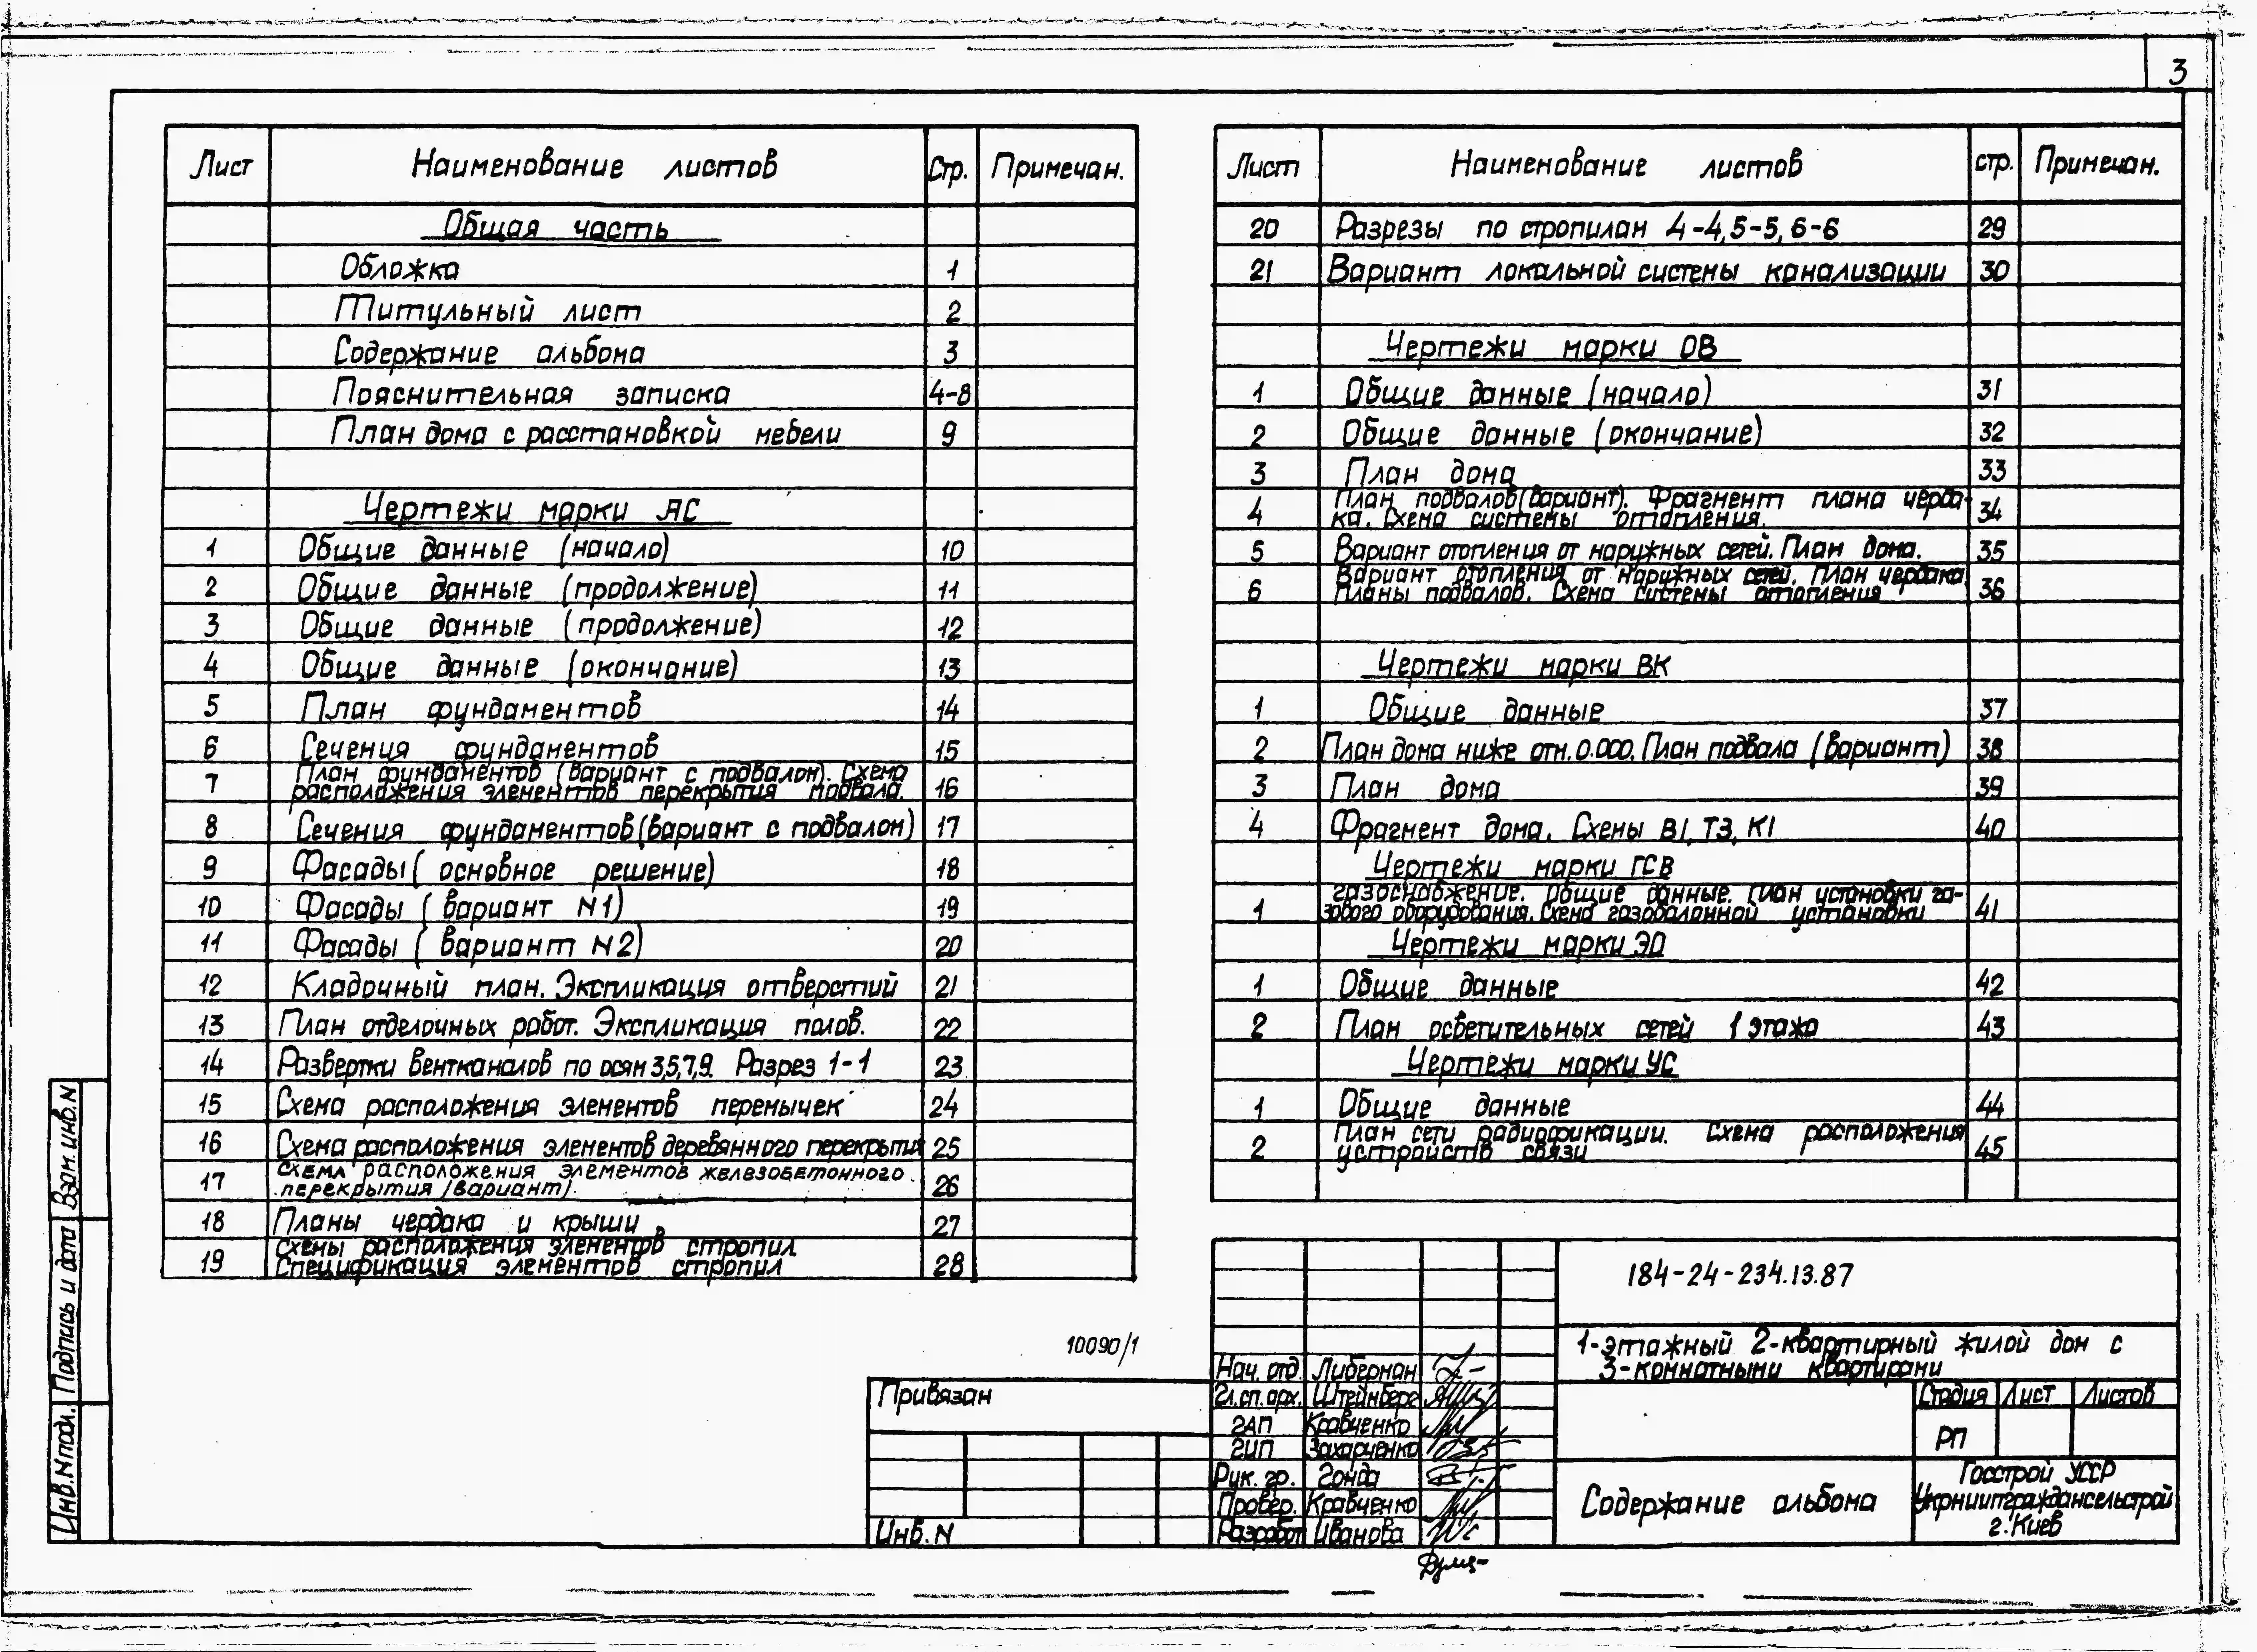 3
Лист Наименование листов Стр. Примечан.
Общая часть
Обложка 1
Титульный лист 2
Содержание альбома 3
Пояснительная записка 4-8
План дома с расстановкой мебели 9
Чертежи марки АС
1 Общие данные (начало) 10
2 Общие данные (продолжение) 11
3 Общие данные (продолжение) 12
4 Общие данные (окончание) 13
5 План фундаментов 14
6 Сечения фундаментов 15
7 План фундаментов (вариант с подвалом). Схема
расположения элементов перекрытия подвала. 16
8 Сечения фундаментов (вариант с подвалом) 17
9 Фасады ( основное решение) 18
10 Фасады ( вариант N1) 19
11 Фасады ( вариант N2) 20
12 Кладочный план. Экспликация отверстий 21
13 План отделочных работ. Экспликация полов. 22
14 Развертки вентканалов по осям 3,5,7,9. Разрез 1-1 23
15 Схема расположения элементов перемычек 24
16 Схема расположения элементов деревянного перекрытия 25
17 Схема расположения элементов железобетонного
перекрытия (вариант). 26
18 Планы чердака и крыши 27
19 Схемы расположения элементов стропил.
Спецификация элементов стропил 28
Лист Наименование листов стр. Примечан.
20 Разрезы по стропилам 4-4, 5-5, 6-6 29
21 Вариант локальной системы канализации 30
Чертежи марки ОВ
1 Общие данные (начало) 31
2 Общие данные (окончание) 32
3 План дома 33
4 План подвалов (вариант). Фрагмент плана черда-
ка. Схема системы отопления. 34
5 Вариант отопления от наружных сетей. План дома. 35
6 Вариант отопления от наружных сетей. План чердака.
Планы подвалов. Схема системы отопления 36
Чертежи марки ВК
1 Общие данные 37
2 План дома ниже отм. 0.000. План подвала (вариант) 38
3 План дома 39
4 Фрагмент дома. Схемы В1, Т3, К1 40
Чертежи марки ГСВ
1 Газоснабжение. Общие данные. План установки га-
зового оборудования. Схема газобалонной установки 41
Чертежи марки ЭО
1 Общие данные 42
2 План осветительных сетей 1 этажа 43
Чертежи марки УС
1 Общие данные 44
2 План сети радиофикации. Схема расположения
устройств связи 45
Взам. инв. N
Подпись и дата
Инв. N подл.
10090/1
Привязан
Инв. N
184-24-234.13.87
1-этажный 2-квартирный жилой дом с
3-комнатными квартирами
Нач. отд. Либерман
Гл. сп. арх. Штейнберг
ГАП Кравченко
ГИП Захарченко
Рук. гр. Гонда
Провер. Кравченко
Разработ. Иванова
Стадия Лист Листов
РП
Содержание альбома
Госстрой УССР
Укрниипграждансельстрой
г. Киев